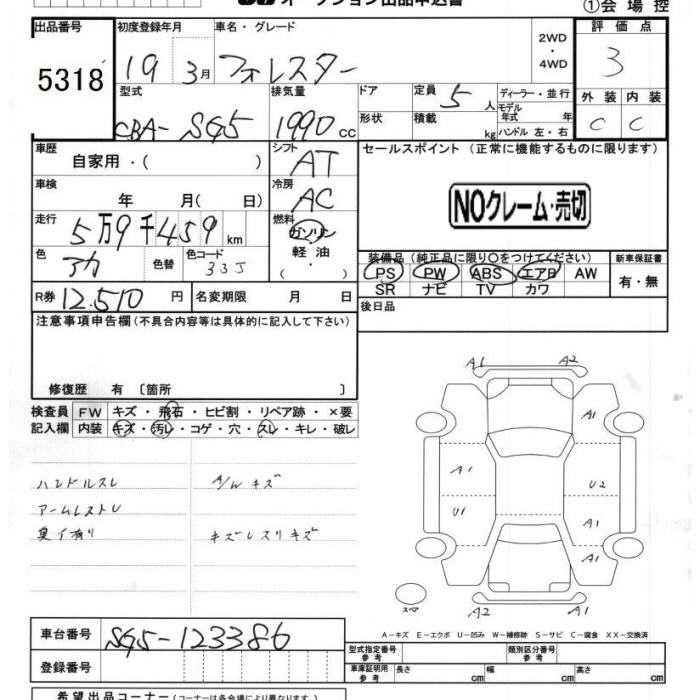 オークション出品申込書
①会場控
出品番号
5318
初度登録年月
19 3月
車名・グレード
フォレスター
2WD
・
4WD
評価点
3
型式
CBA-SG5
排気量
1990 cc
ドア
形状
定員 5 人
積載 kg
ディーラー・並行
モデル年式 年
ハンドル 左・右
外装 内装
C C
車歴
自家用・( )
シフト
AT
セールスポイント (正常に機能するものに限ります)
車検
年 月( 日)
冷房
AC
NOクレーム・売切
走行
5万9千459 km
燃料
ガソリン
軽油
・( )
色
アカ
色替
色コード
33J
装備品(純正品に限り○をつけてください)
PS PW ABS エアB AW
SR ナビ TV カワ
新車保証書
有・無
R券 12,510 円
名変期限 月 日
後日品
注意事項申告欄(不具合内容等は具体的に記入して下さい)
修復歴 有〔箇所 〕
検査員記入欄
FW キズ・飛石・ヒビ割・リペア跡・×要
内装 キズ・汚レ・コゲ・穴・スレ・キレ・破レ
ハンドルスレ
A/W キズ
アームレストU
臭イ有り
A1 A2
A1
A1
U2
U1
A1
A1
A2 A1
スペア
A-キズ E-エクボ U-凹み W-補修跡 S-サビ C-腐食 XX-交換済
車台番号
SG5-123386
登録番号
型式指定番号 参考
類別区分番号 参考
車庫証明用 参考
長さ cm
幅 cm
高さ cm
希望出品コーナー(コーナーは各会場により異なります)